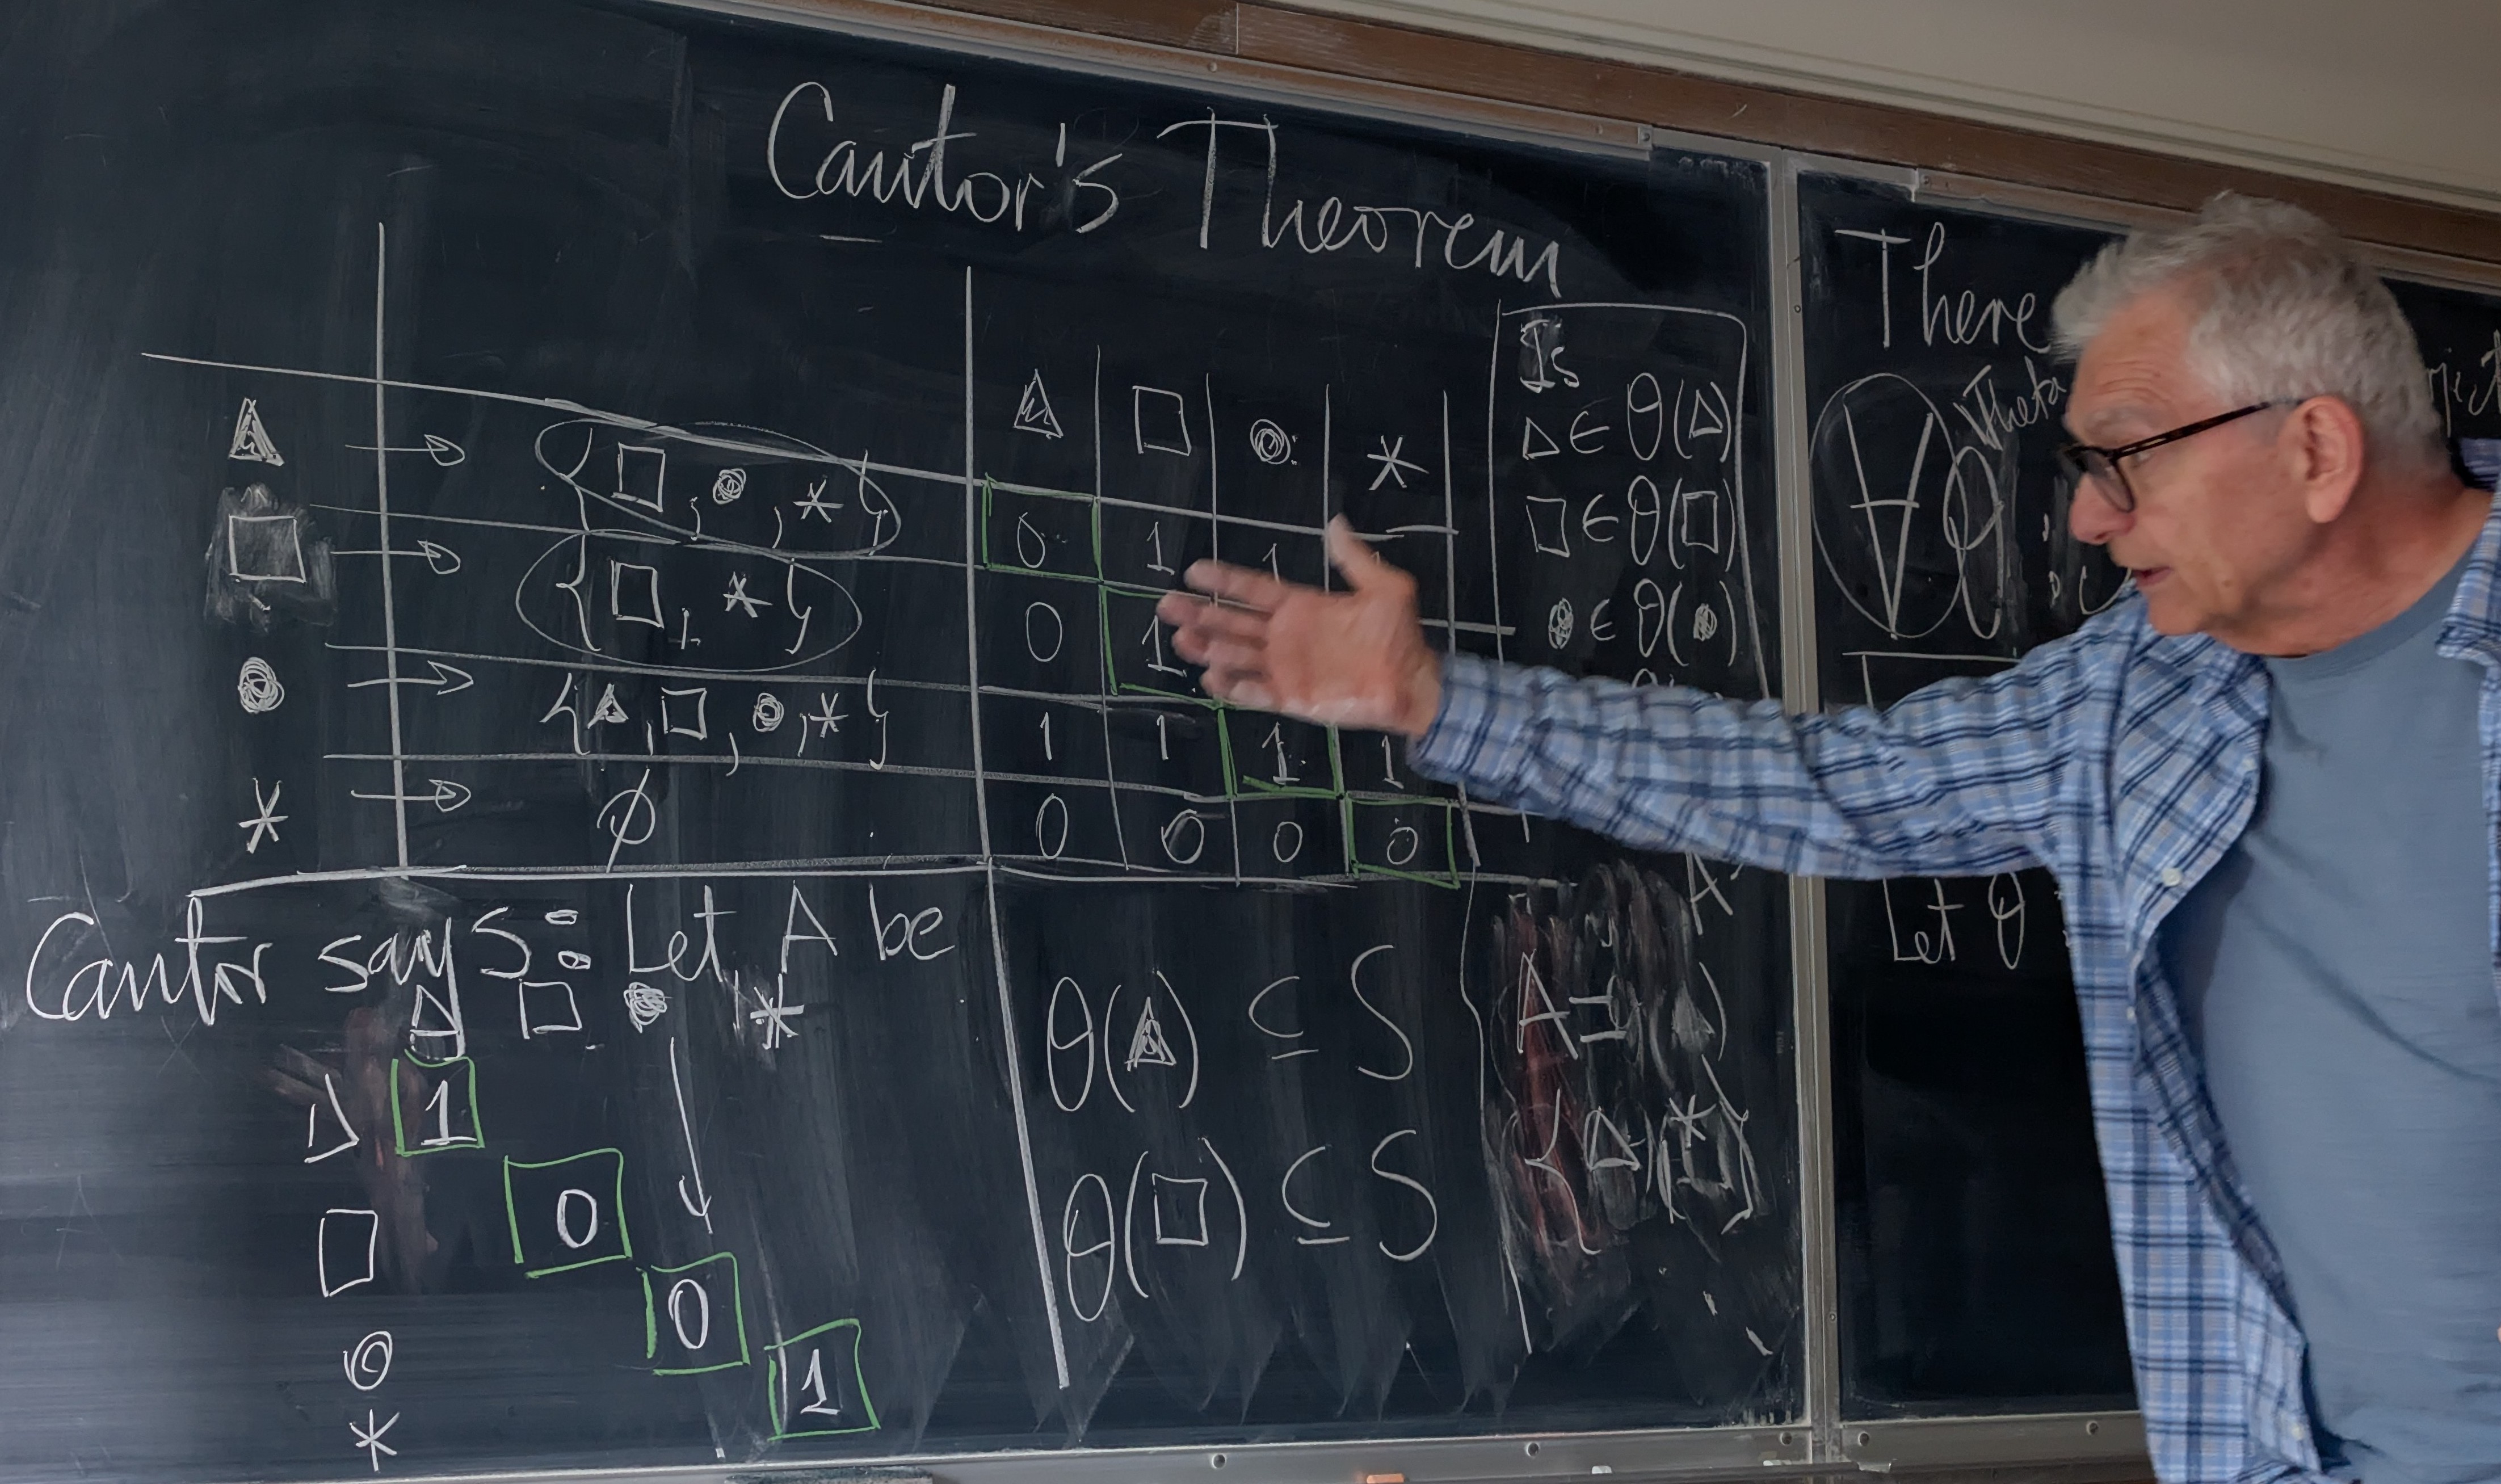 Cantor's Theorem
△ □ ◎ *
△ → {□, ◎, *} 0 1 1
□ → {□, *} 0 1
◎ → {△, □, ◎, *} 1 1 1 1
* → ∅ 0 0 0 0
Is
△ ∈ θ(△)
□ ∈ θ(□)
◎ ∈ θ(◎)
Cantor says: Let A be
△ □ ◎ *
△ 1
□ 0
◎ 0
* 1
θ(△) ⊆ S
θ(□) ⊆ S
A =
There
∀θ
Theta
Let θ